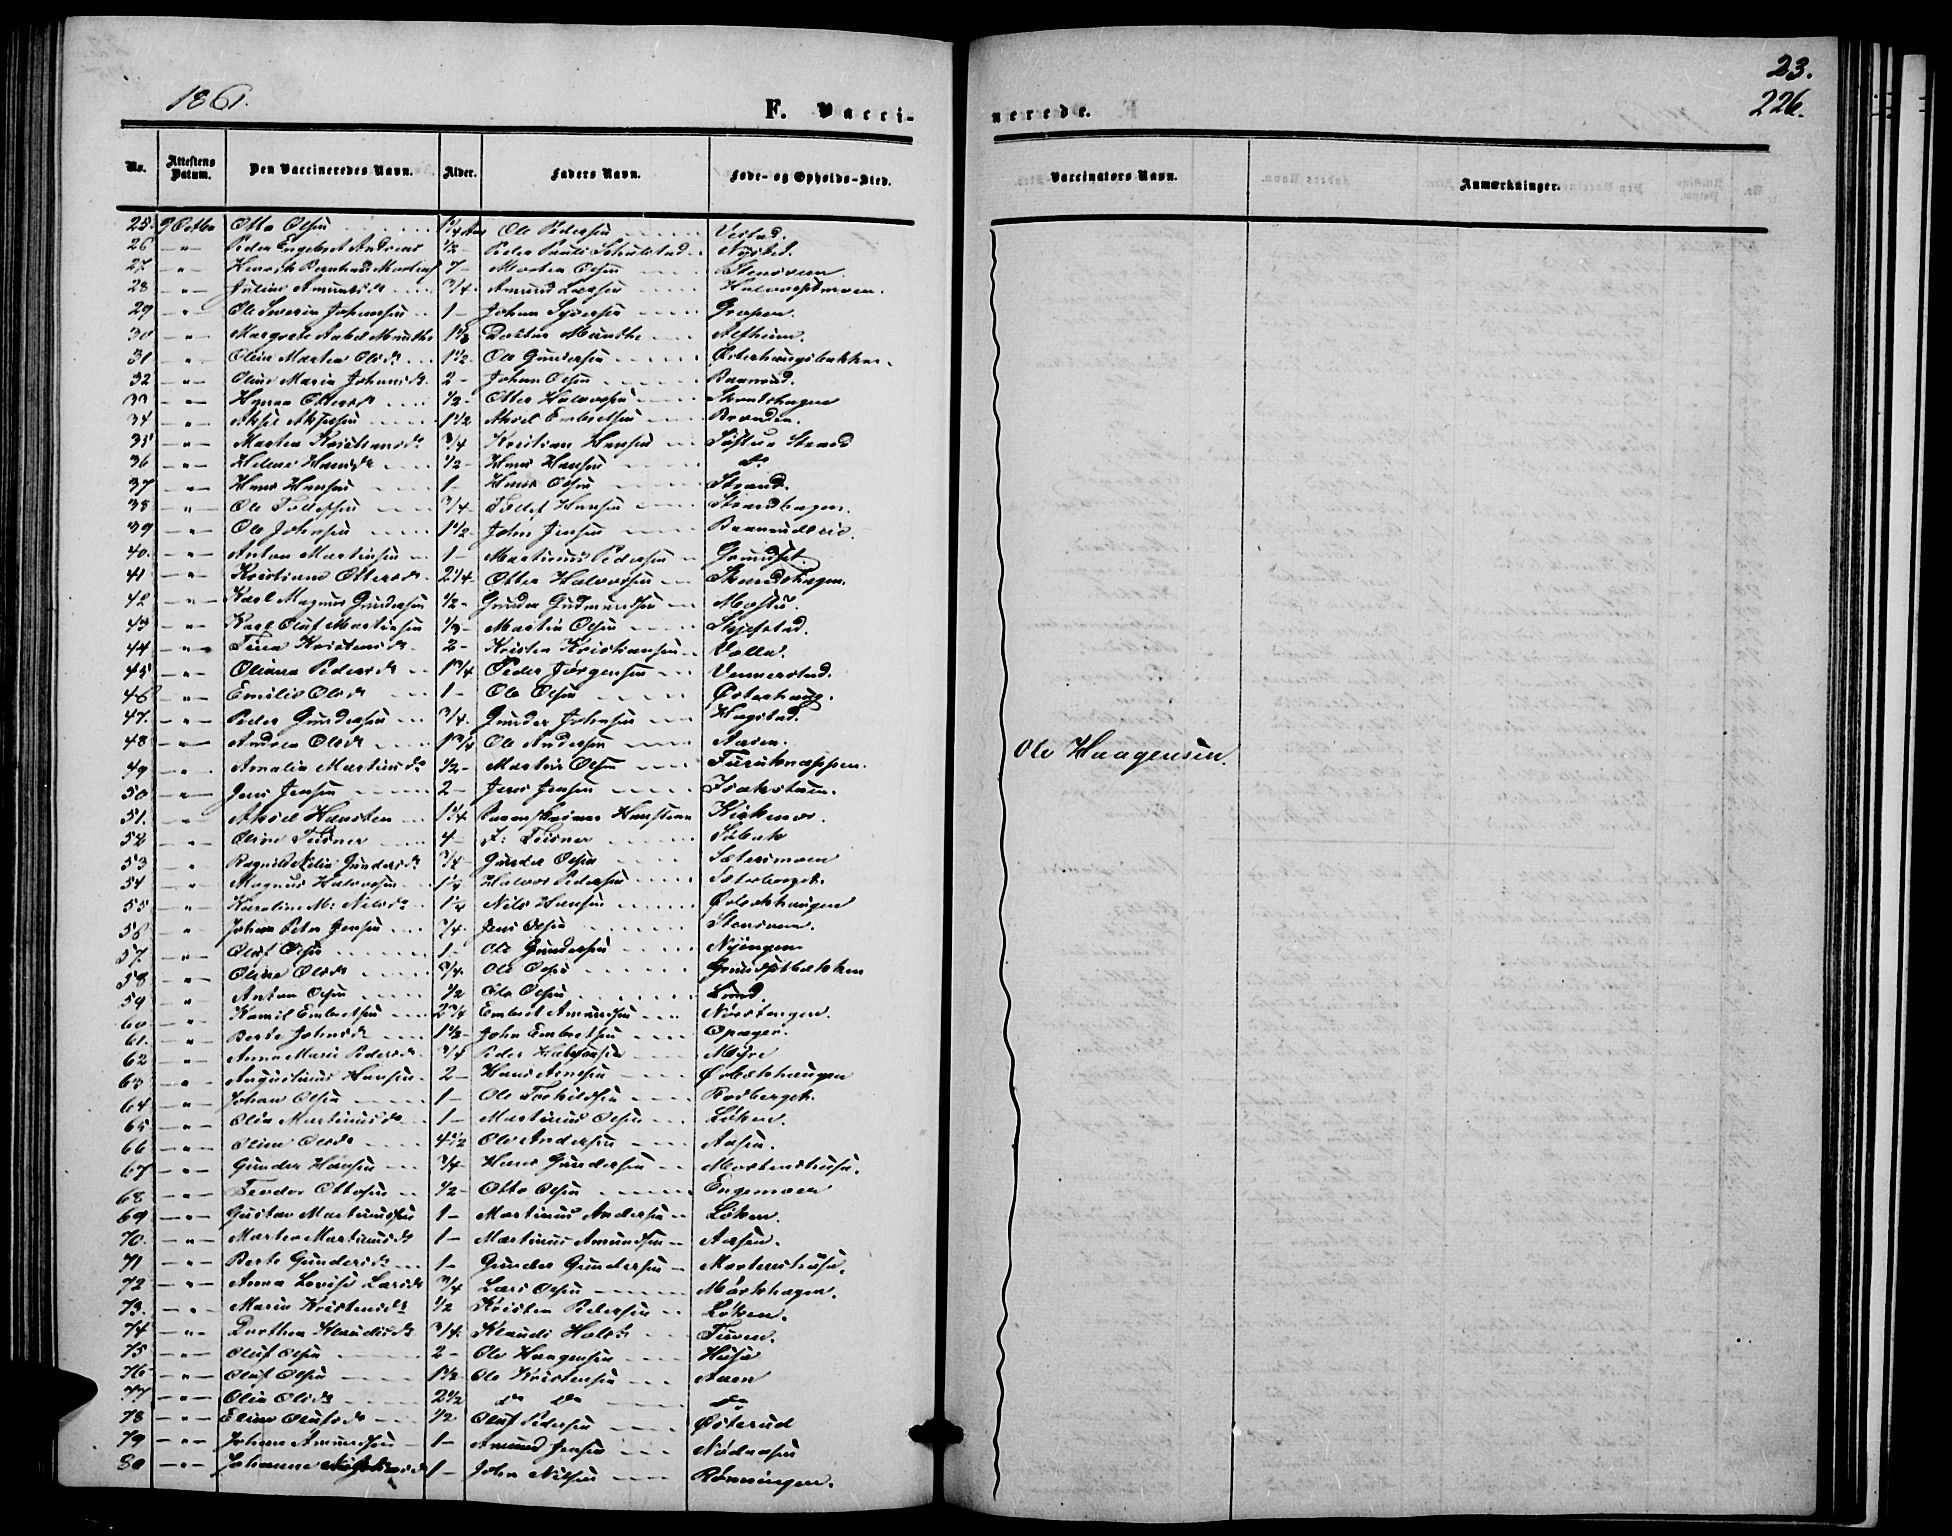 23.
1861.
F. Vacci-
nerede.
226.
No.
Attestens Datum.
Den Vaccineredes Navn.
Alder.
Faders Navn.
Føde- og Opholds-Sted.
Vaccinators Navn.
Anmærkninger.
25. 9 Octbr Otto Olsen 1 1/4 Aar Ole Pedersen
26 — " — Peder Engebret 1/2 - Peder Nysted.
27. — " — Henrik Bernhard 7 - Morten Olsen Stensveen.
28 — " — 3/4. Amund Larsen
29 — " Ole Severin Johansen 1 - Johan Grasen.
30 — " — Margrete Aabel Munthe Doktor Munthe Altheim.
31 — " — Oline Martea Olsdr 1 1/2 - Ole Gundersen Østerhaugsbakken.
32 — " — Oline Maria Johansdr. 2 - Johan Olsen Baanrud.
33 — " — Ottersdr 1/2 - Otter Halvorsen Strandshagen
34 — " — Aksel Akselsen 1 1/2 Aksel Embretsen Branden.
35 — " — Martea Kristiansdr 3/4 Kristian Hansen Strand
36 — " — Helene Hansdr 1/2 - Hans Hansen do
37 — " — Hans Hansen 1 - Hans Olsen Strand.
38 — " — Ole Tollefsen 3/4 Tollef Hansen Strandhagen.
39 — " — Ole Johnsen 1 1/2 John Jensen
40. — " — Anton Martinsen 1 - Martinus Pedersen Grundset.
41 — " — Kristiane Ottersdr. 2 1/4. Otter Halvorsen Strandshagen.
42 — " — Karl Magnus Gundersen 1/2 - Gunder Gudmundsen
43 — " — Karl Oluf Martinsen 1/3 - Martin Olsen Skjefstad.
44 — " — Tina Kristensdr. 2 - Kristen Kristiansen Volla.
45 — " — Oliana Pedersdr 1 3/4 Peder Jørgensen Vermerstad.
46 — " — Emilie Olsdr 1 - Ole Olsen Østerhaug.
47. — " — Peder Gundersen 3/4. Gunder Johnsen Hagstad.
48 — " — Andrea Olsdr 1 3/4 Ole Andersen Aasen.
49 — " . Amalia Martinsdr 1/2 - Martin Olsen Furuknappen.
50 — " — Jens Jensen 2 - Jens Jensen
51. — " . Aksel Hansteen 1 1/4 Hansteen Kirkemo.
52 — " — Oline Teisner 4 - J: Teisner Solbak
53 — " Ragnild Gundersdr 3/4 - Gunder Olsen Sætersmoen
54 — " — Magnus Halvorsen 1 1/4 Halvor Pedersen Sæterberget.
55 — " — Karoline M: Nilsdr 1 1/4 Nils Hansen Ørbækhaugen
56 — " Johan Peter Jensen 3/4. Jens Olsen Stensveen.
57. — " — Oluf Olsen 1 - Ole Gundersen Nyengen
58 — " — Oline Olsdr 3/4. Ole Olsen Grundsetbakken
59 — " — Anton Olsen 1/2 Ole Olsen Lund.
60 — " — Kamil Embretsen 2 3/4 Embret Amundsen Norstengen.
61. — " — Berte Johnsdr 1 1/2 - John Embretsen Opæger.
62 — " — Anna Marie Pedersdr 3/4 Peder Myre
63 — " — Augustinus Hansen 2 - Hans Arnesen Ørbækhaugen
64 — " — Johan Olsen 1 - Ole Torkildsen Rosberget.
65 — " — Olia Martinusdr 1 - Martinus Olsen Løken.
66 — " — Oline Olsdr 4 1/2 Ole Andersen Aasen.
67 — " — Gunder Hansen 3/4 - Hans Gundersen Mortenstrusa.
68 — " — Teodor Ottosen 1/2 - Otto Olsen Engemoen
69 — " — Gustav Martinussen 1 - Martinus Andersen Løken.
70. — " — Martea Martinusdr 1 - Martinus Amundsen Aasen.
71 — " — Berte Gundersdr 1 - Gunder Gundersen Mortenstrusa.
72 — " — Anna Lovise Larsdr 3/4 Lars Olsen Mørkhagen.
73. — " — Maria Kristensdr 1/2 Kristen Pedersen Løken.
74 — " — Dorthea Klaudisdr 3/4. Klaudi Tuven.
75 — " — Oluf Olsen 2 - Ole Haagensen Husu
76 — " — Oluf Olsen 1 1/2 Ole Kristensen Aaen
77 — " — Olia Olsdr 2 1/2 do do do
78 — " — Eline Olufsdr 1/2 Oluf Pedersen Østerud
79 — " — Johan Amundsen 1 - Amund Jensen Nordaasen
80 — " — Johanne 1 - John Nilsen Rønningen.
Ole Haagensen.